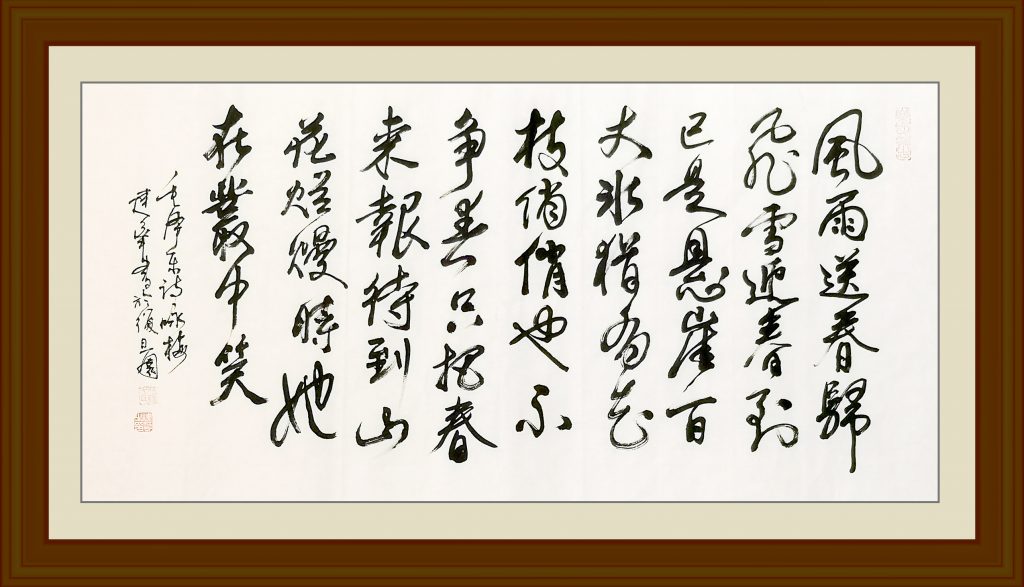 風雨送春歸
飛雪迎春到
已是懸崖百
丈冰猶有花
枝俏俏也不
争春只把春
来報待到山
花爛熳時她
在叢中笑
毛澤东詩咏梅
書於復旦園